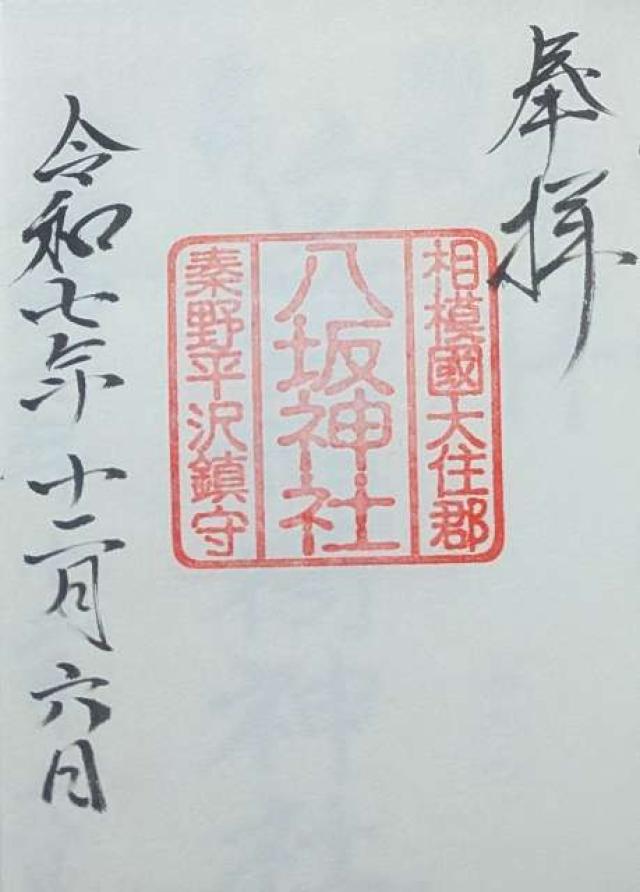 奉拝
相模國大住郡
八坂神社
秦野平沢鎮守
令和七年十二月六日